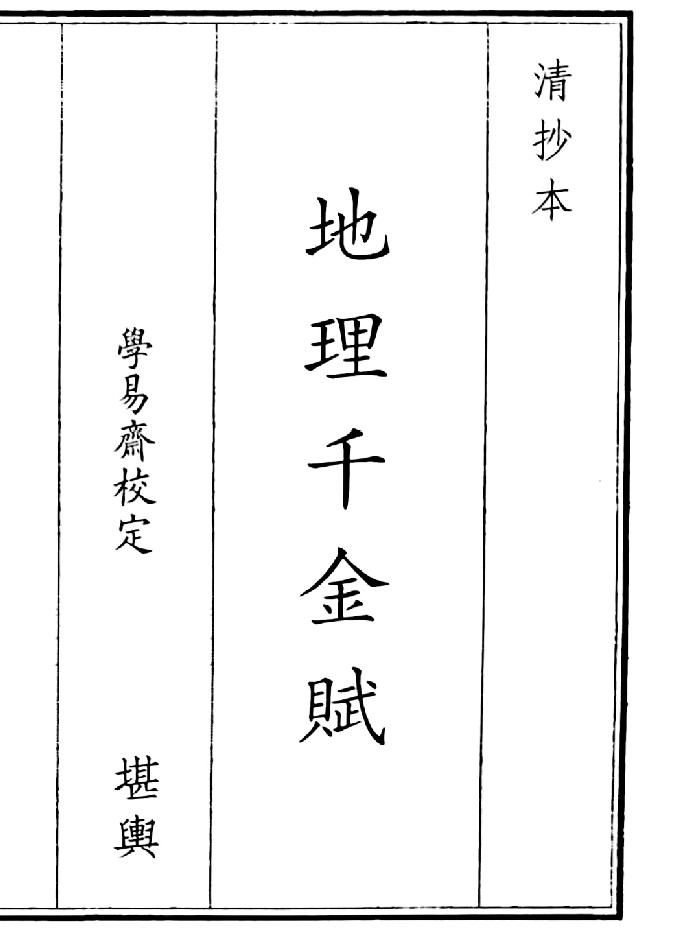 清抄本
地理千金賦
學易齋校定
堪輿